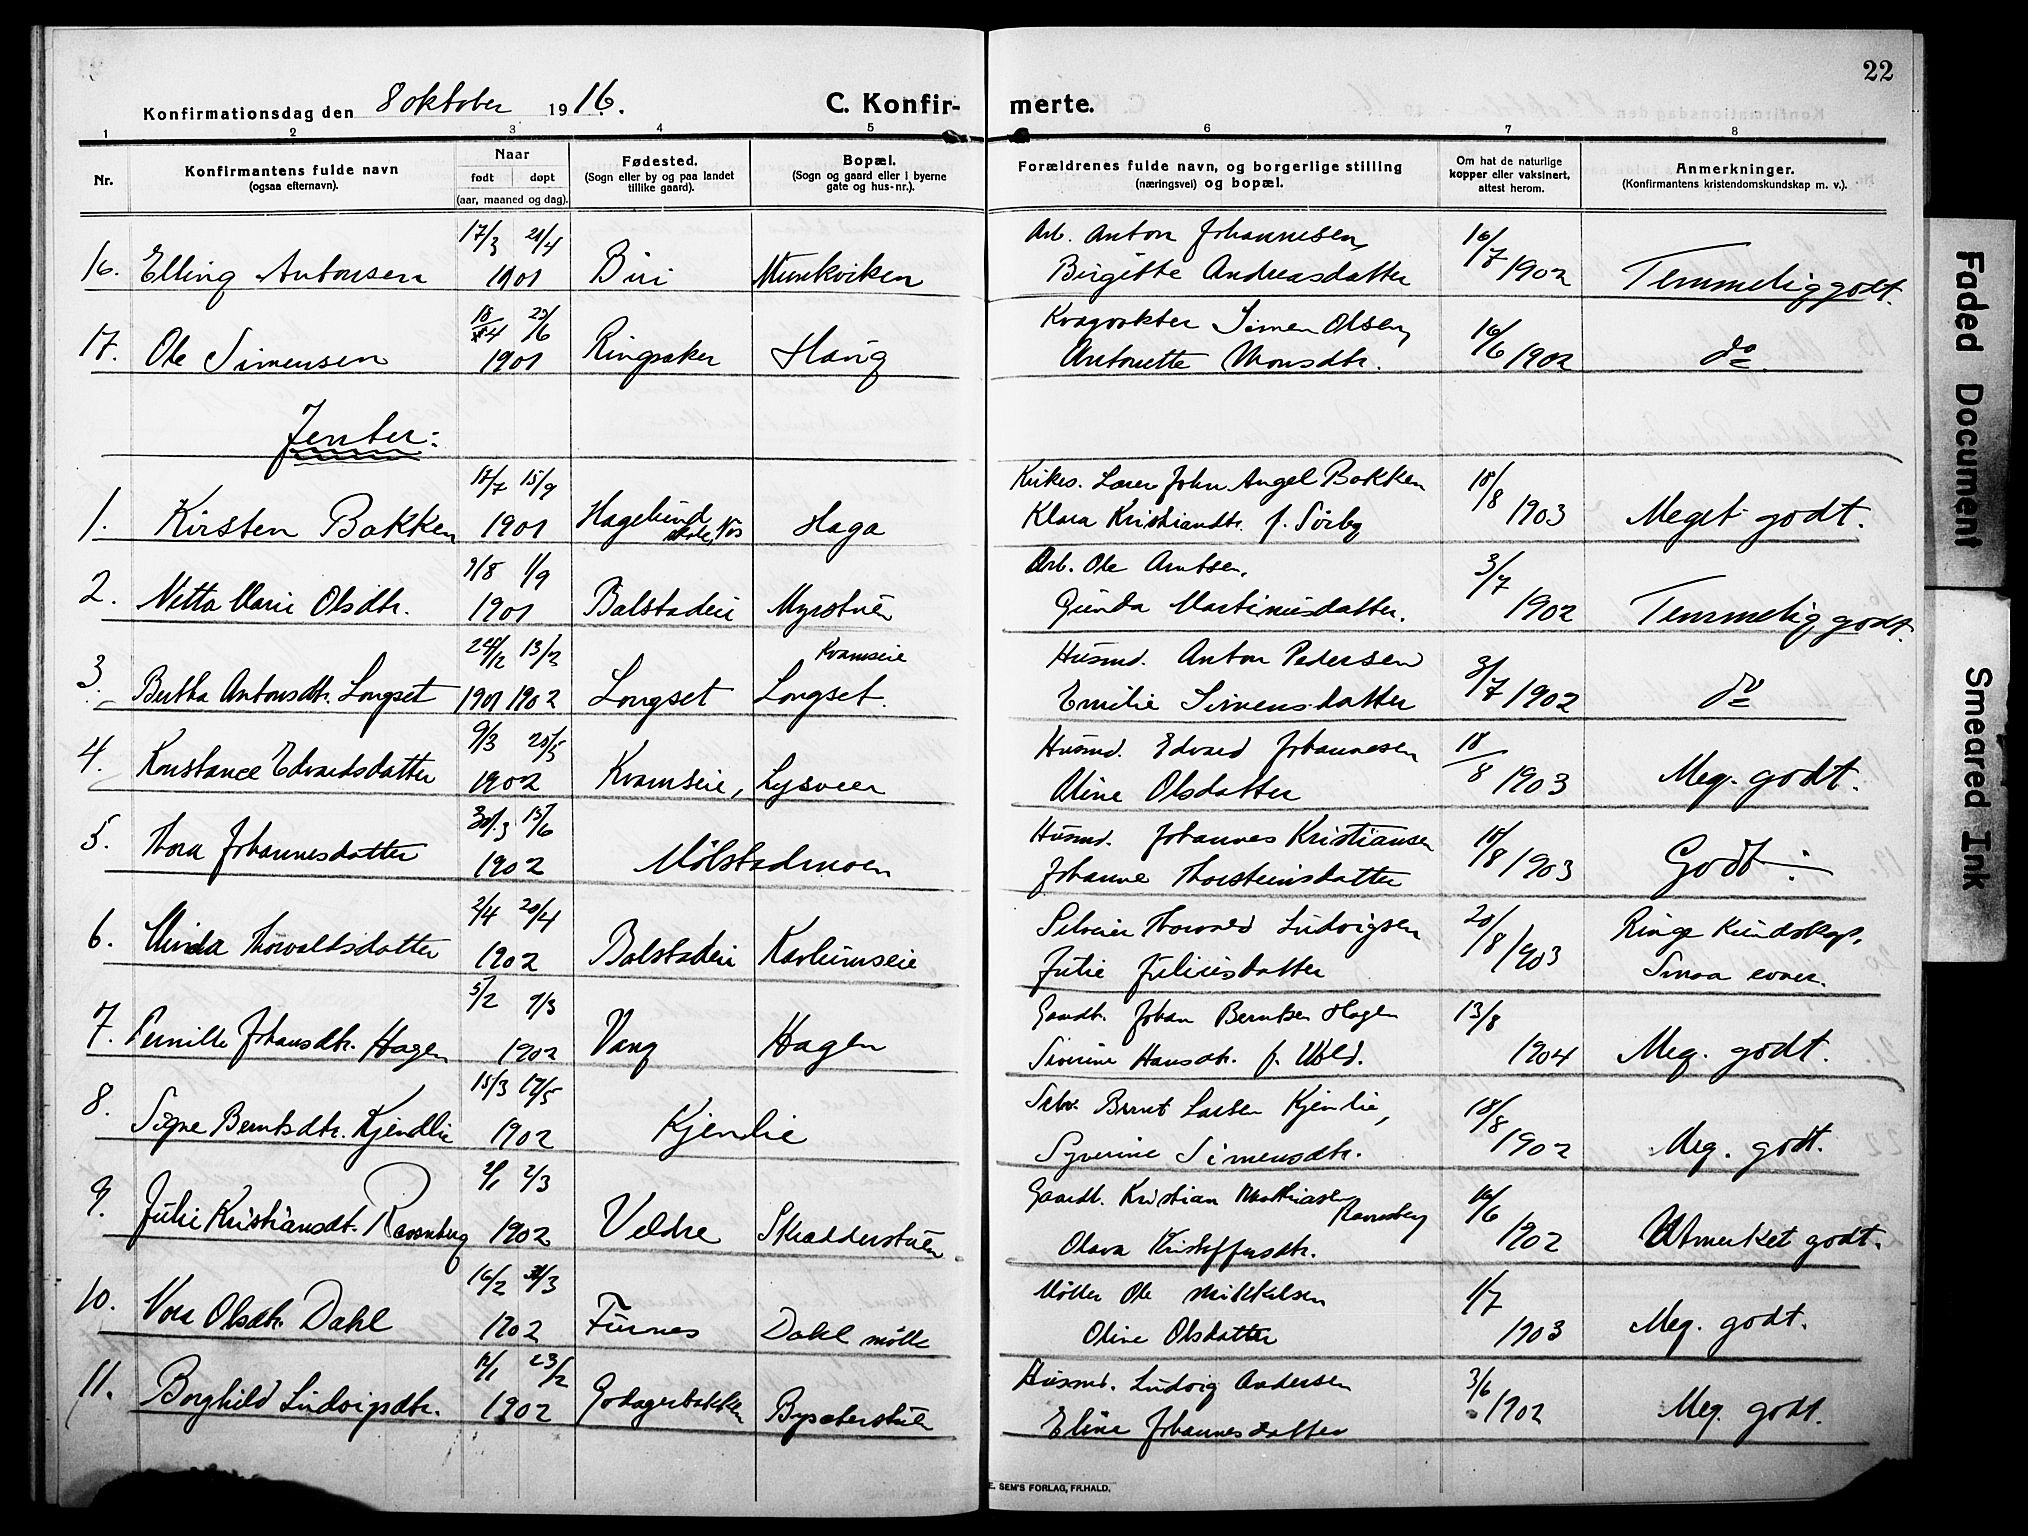 22
Konfirmationsdag den 8 oktober 1916. C. Konfirmerte.
1 2 3 4 5 6 7 8
Nr. Konfirmantens fulde navn (ogsaa efternavn). Naar født døpt (aar, maaned og dag). Fødested. (Sogn eller by og paa landet tillike gaard). Bopæl. (Sogn og gaard eller i byerne gate og hus-nr.). Forældrenes fulde navn, og borgerlige stilling (næringsvei) og bopæl. Om hat de naturlige kopper eller vaksinert, attest herom. Anmerkninger. (Konfirmantens kristendomskundskap m. v.).
17/3 21/4 Arb. Anton Johannesen, 16/7
16. Elling Antonsen 1901 Biri Munkviken Birgitte Andreasdatter 1902 Temmelig godt.
18/4 23/6 Simen Olsen, 16/6
17. Ole Simensen 1901 Ringsaker Haug Antonette Monsdtr. 1902 do
Jenter:
17/7 15/9 Kirkes. Lærer John Angel Bakken 18/8
1. Kirsten Bakken 1901 Hagelund skole, Nes Haga Klara Kristiansdtr. f. Sörby 1903 Meget godt.
9/8 1/9 Arb. Ole Arntsen. 3/7
2. Netta Marie Olsdtr. 1901 Balstadeie Myrstuen Gunda Martinusdatter. 1902 Temmelig godt.
24/12 13/2 Kvamseie Husmd. Anton Pedersen 3/7
3. Bertha Antonsdtr. Longset 1901 1902 Longset Longset. Emilie Simensdatter 1902 do
9/3 20/5 Husmd. Edvard Johannesen 18/8
4. Konstance Edvardsdatter 1902 Kvamseie, Lysveen Oline Olsdatter 1903 Meg. godt.
30/3 15/6 Husmd. Johannes Kristiansen 18/8
5. Thora Johannesdatter 1902 Mölstadmoen Johanne Thorsteinsdatter 1903 Godt.
2/4 20/4 Selveier Thorvald Ludvigsen 20/8 Ringe Kundskap.
6. Minda Thorvaldsdatter 1902 Balstadeie Karlumseie Julie Juliusdatter 1903 Smaa evner.
5/2 9/3 Gaardbr. Johan Berntsen Hagen 13/8
7. Pernille Johansdtr. Hagen 1902 Vang Hagen Severine Hansdtr. f. Wold. 1904 Meg. godt.
15/3 19/5 Selv. Bernt Larsen Kjenlie, 18/8
8. Signe Berntsdtr. Kjendlie 1902 Kjenlie Syverine Simensdtr. 1902 Meg. godt.
2/3 Gaardbr. Kristian Mathiasen Ravnsberg 16/6
9. Julie Kristiansdtr. Ravnsberg 1902 Veldre Skrædderstuen Olava Kristoffersdtr. 1902 Utmerket godt.
16/2 31/3 Möller Ole Mikkelsen 1/7
10. Vora Olsdtr. Dahl 1902 Furnes Dahl mölle Oline Olsdatter 1903 Meg. godt.
12/1 23/2 Husmd. Ludvig Andersen 3/6
11. Borghild Ludvigsdtr. 1902 Godagerbakken Byseterstuen Eline Johannesdatter 1902 Meg. godt.
E. SEM'S FORLAG, FR.HALD.
Faded Document
Smeared Ink